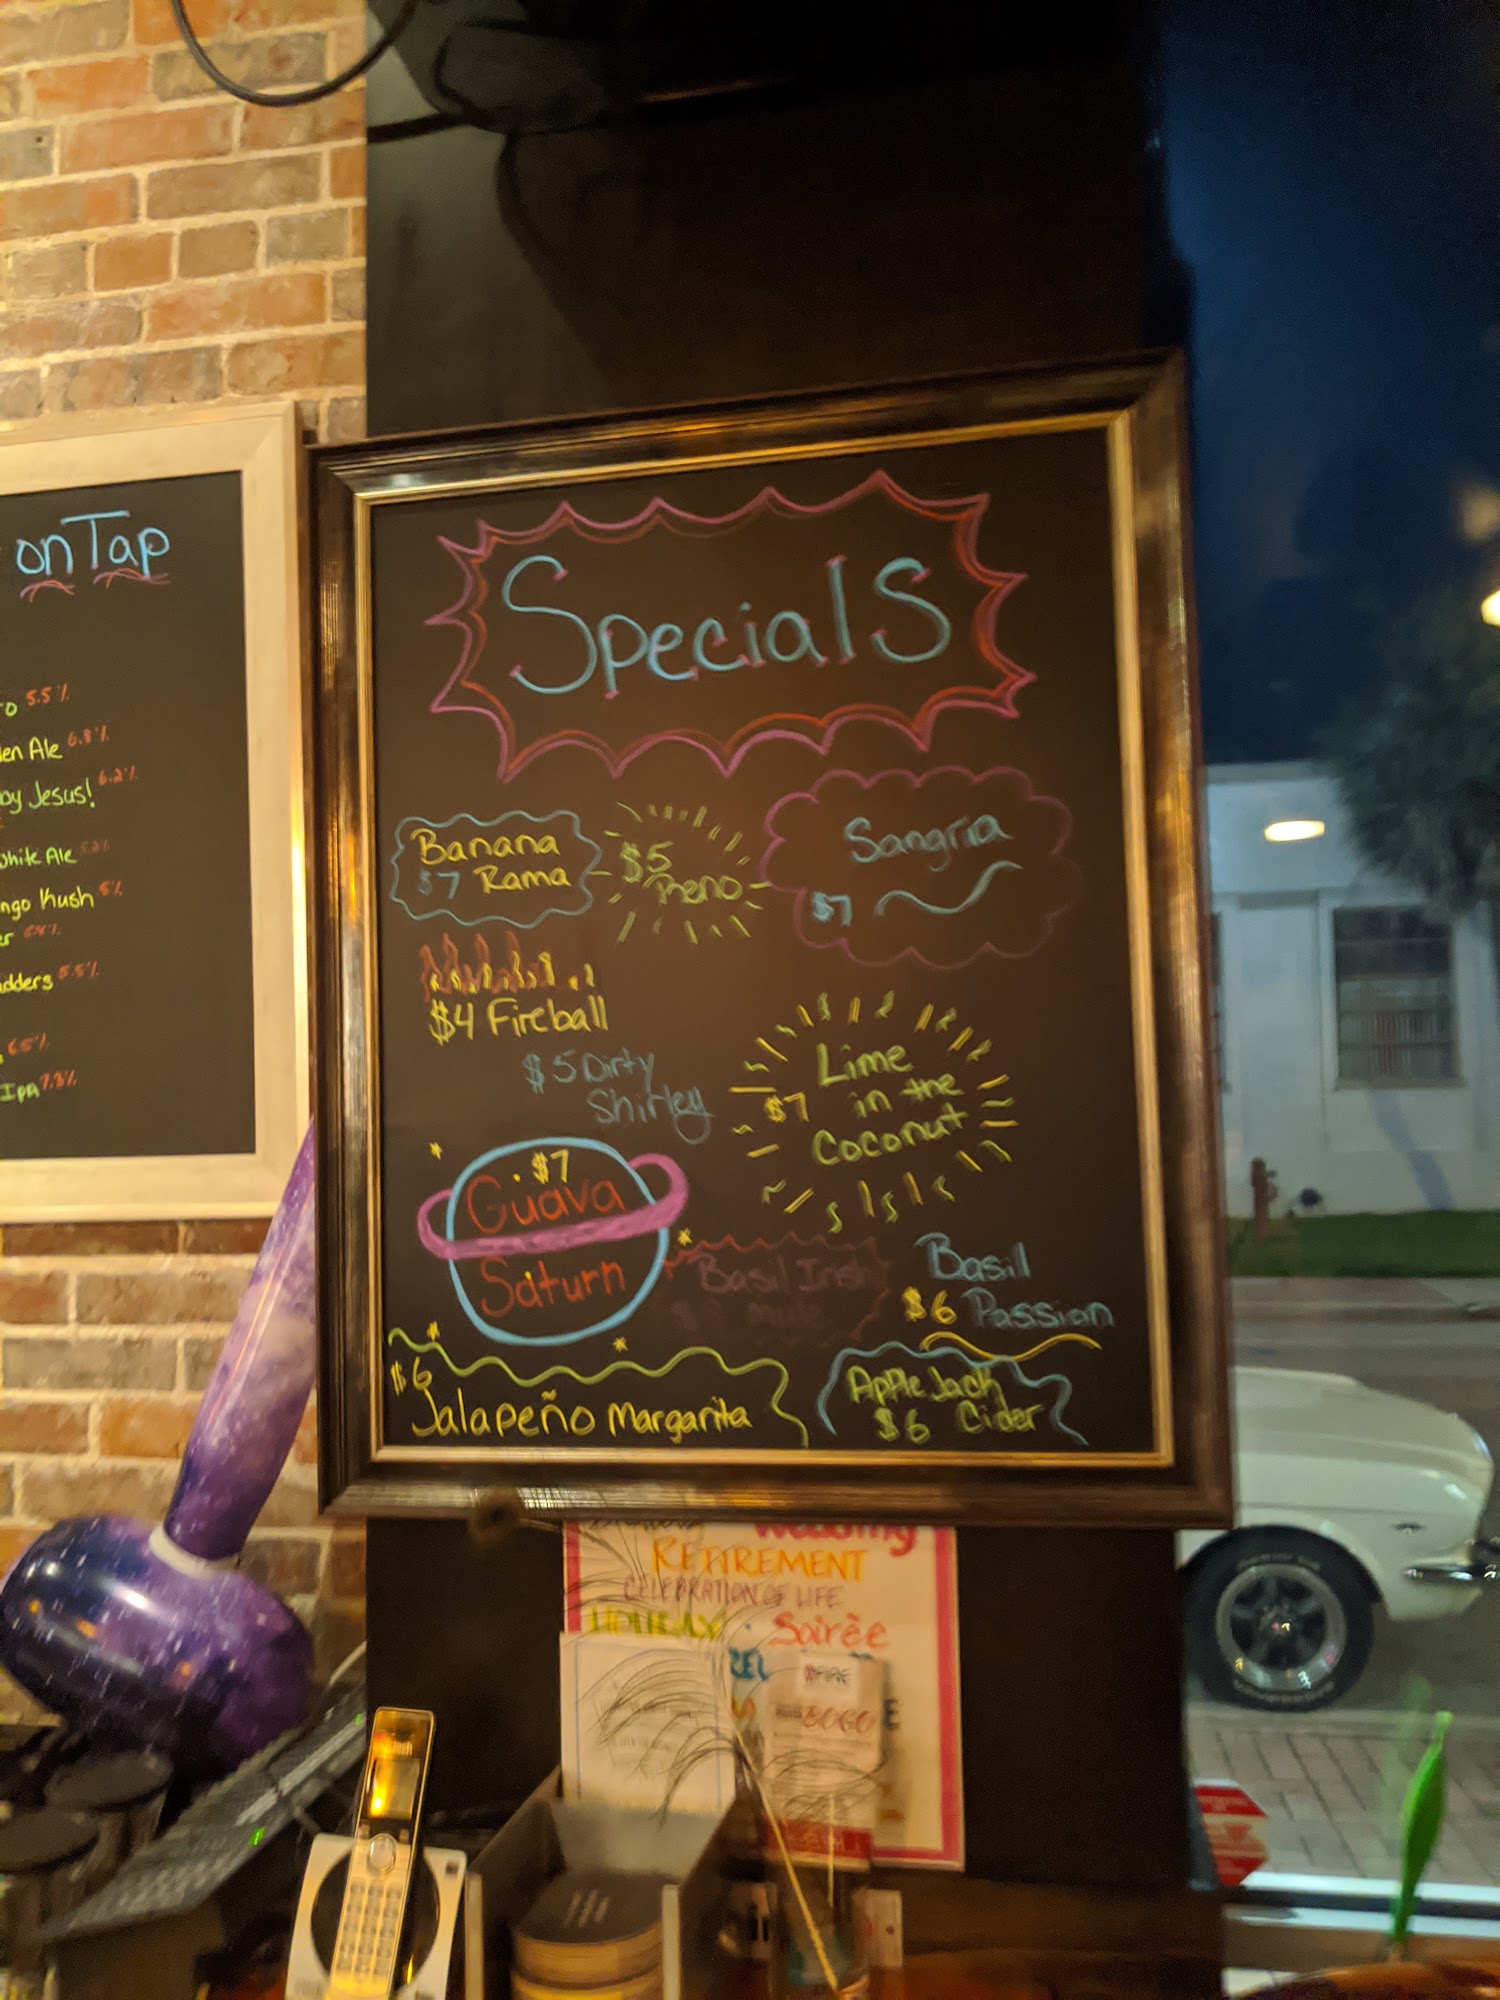 on Tap
5.5%
en Ale 6.8%
by Jesus! 6.2%
White Ale
ngo Kush 5%
dders 5.5%
6.5%
Ipa 7.3%
Specials
Banana
$7 Rama
$5
Keno
Sangria
$7
$4 Fireball
$5 Dirty
Shirley
Lime
$7 in the
Coconut
$7
Guava
Saturn
Basil Irish
Mule
Basil
$6 Passion
$6
Jalapeño Margarita
Apple Jack
$6 Cider
Wedding
RETIREMENT
CELEBRATION OF LIFE
HOLIDAY
Soirèe
BOGO